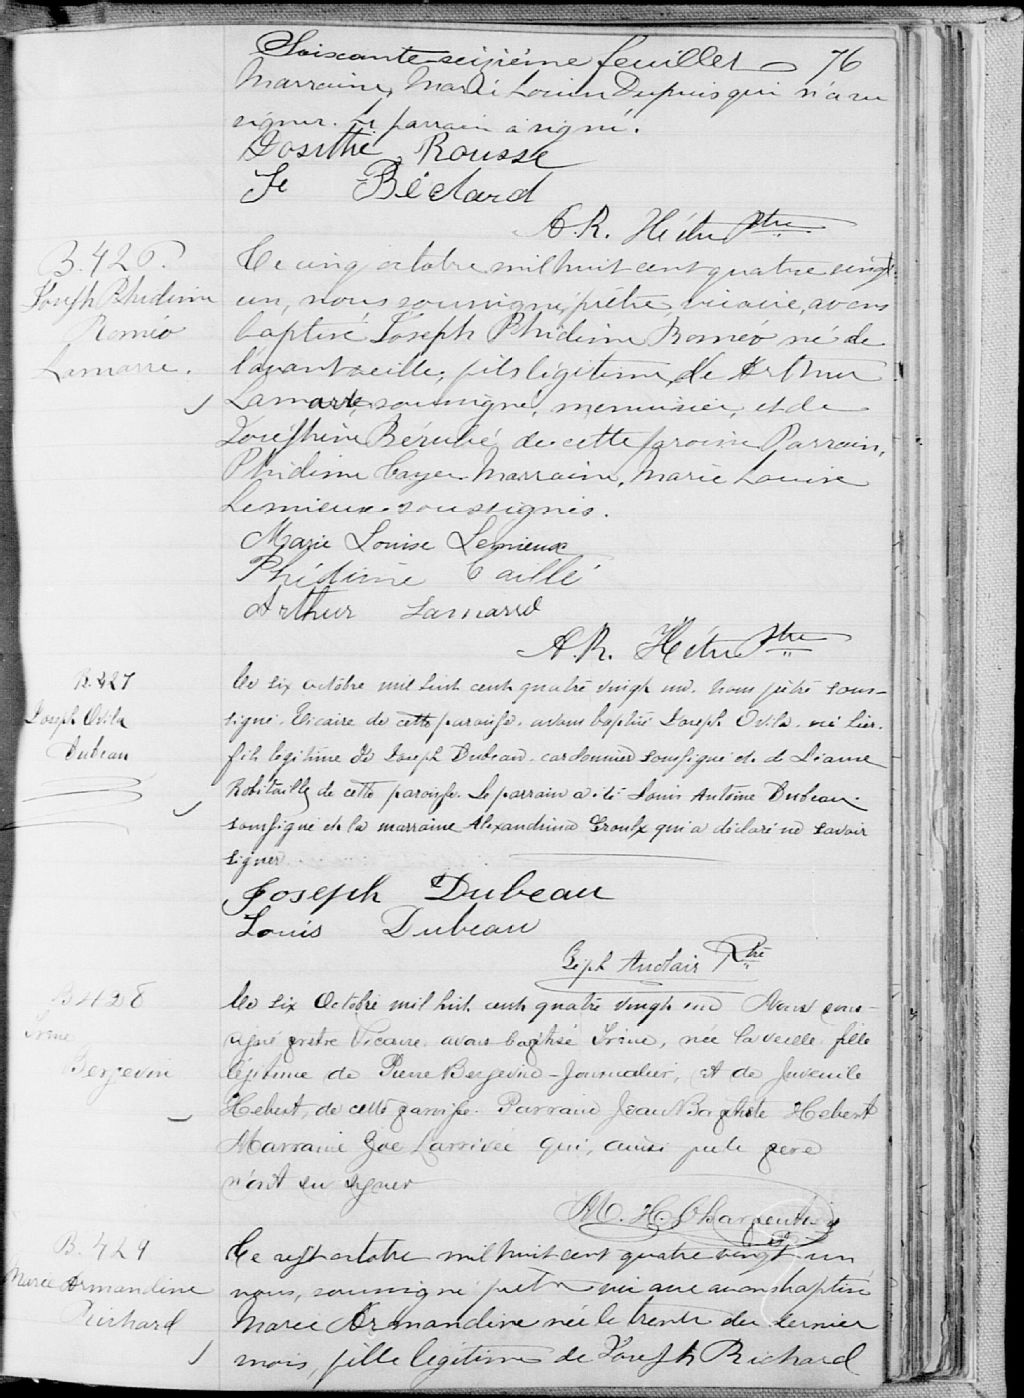 Soixante-seizième feuillet 76
Marraine, Marie Louise Dupuis qui n'a su
signer. Le parrain a signé.
Dosithé Rousse
Je Béclard
A. R. Hétu Ptre
B. 426.
Joseph Phidime
Roméo
Lamarre.
Ce cinq octobre mil huit cent quatre vingt
un, nous soussigné, prêtre, vicaire, avons
baptisé Joseph Phidime Roméo né de
l'avant veille, fils légitime de Arthur
Lamarre, soussigné, menuisier, et de
Joséphine Bérubé de cette paroisse. Parrain,
Phidime Cayer. Marraine, Marie Louise
Lemieux soussignés.
Marie Louise Lemieux
Phidime Caillé
Arthur Lamarre
A. R. Hétu Ptre
B. 427
Joseph Ovila
Dubeau
Ce six octobre mil huit cent quatre vingt un. Nous prêtre sous-
signé, Vicaire de cette paroisse, avons baptisé Joseph Ovila, né hier.
fils légitime de Joseph Dubeau, cordonnier soussigné et de
Robitaille de cette paroisse. Le parrain a été Louis Antoine Dubeau
soussigné et la marraine Alexandrina Groulx qui a déclaré ne savoir
signer
Joseph Dubeau
Louis Dubeau
Zeph Auclair Ptre
B 428
Irène
Bergevin
Ce six Octobre mil huit cent quatre vingt un Nous sous-
signé prêtre Vicaire avons baptisé Irène, née la veille fille
légitime de Pierre Bergevin - Journalier, et de Juvenile
Hebert, de cette paroisse. Parrain Jean Baptiste Hebert
Marraine Zoe Larrivée qui, ainsi que le père
n'ont su signer
M. H. Charpentier
B. 429
Marie Armandine
Richard
Ce sept octobre mil huit cent quatre vingt un
nous, soussigné prêtre vicaire avons baptisé
Marie Armandine née le trente du dernier
mois, fille légitime de Joseph Richard